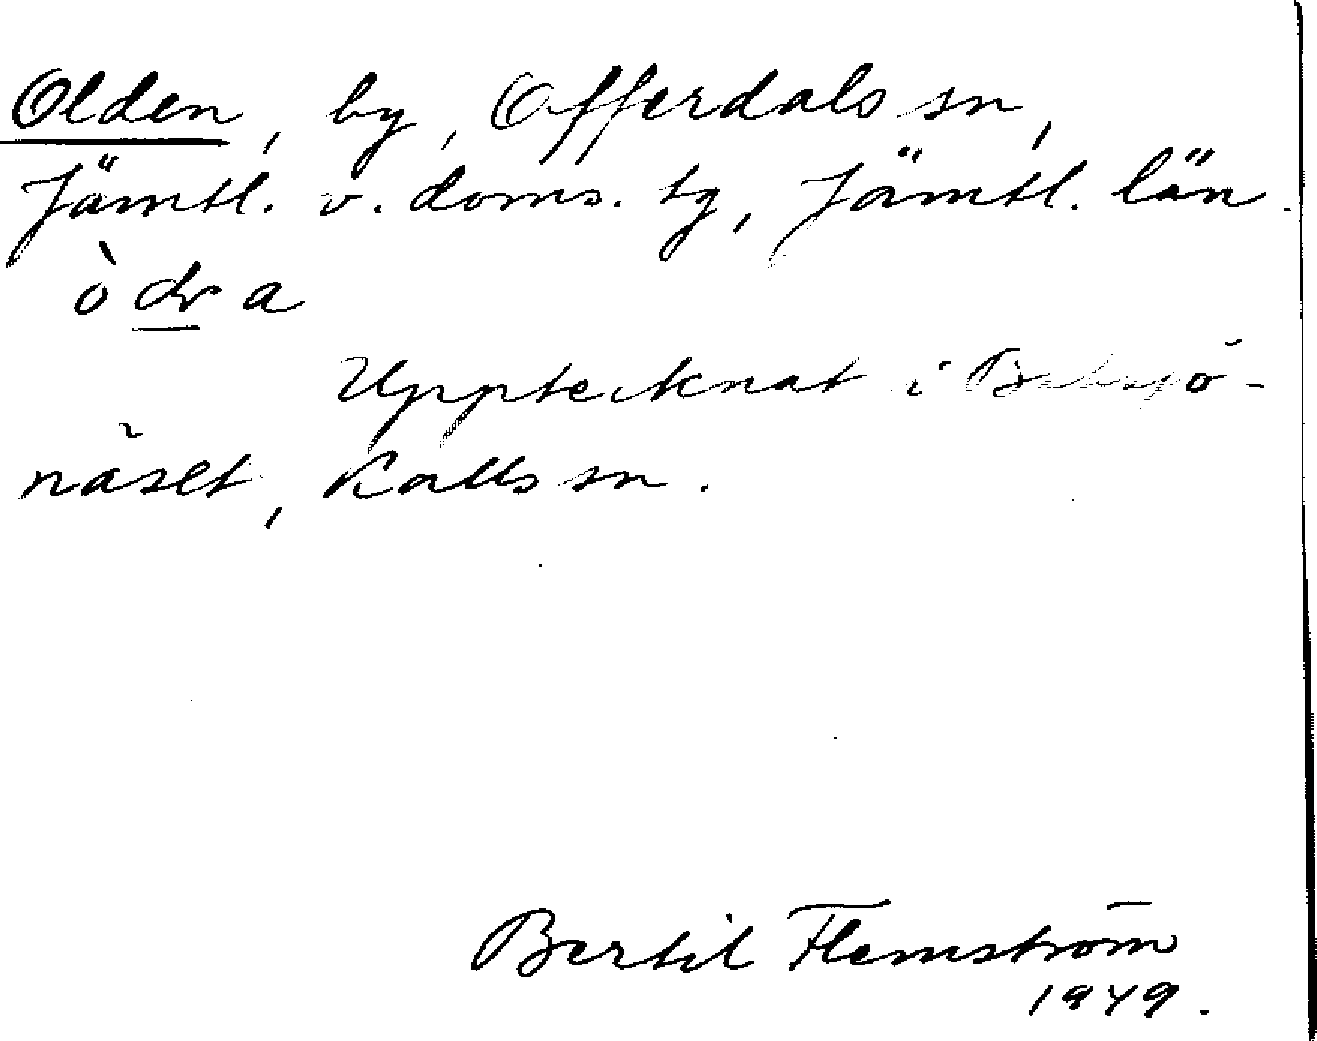 Olden, by, Offerdals sn,
Jämtl. v. doms. tg, Jämtl. län.
Upptecknat i
näset, Kalls sn.
Bertil Flemström
1949.